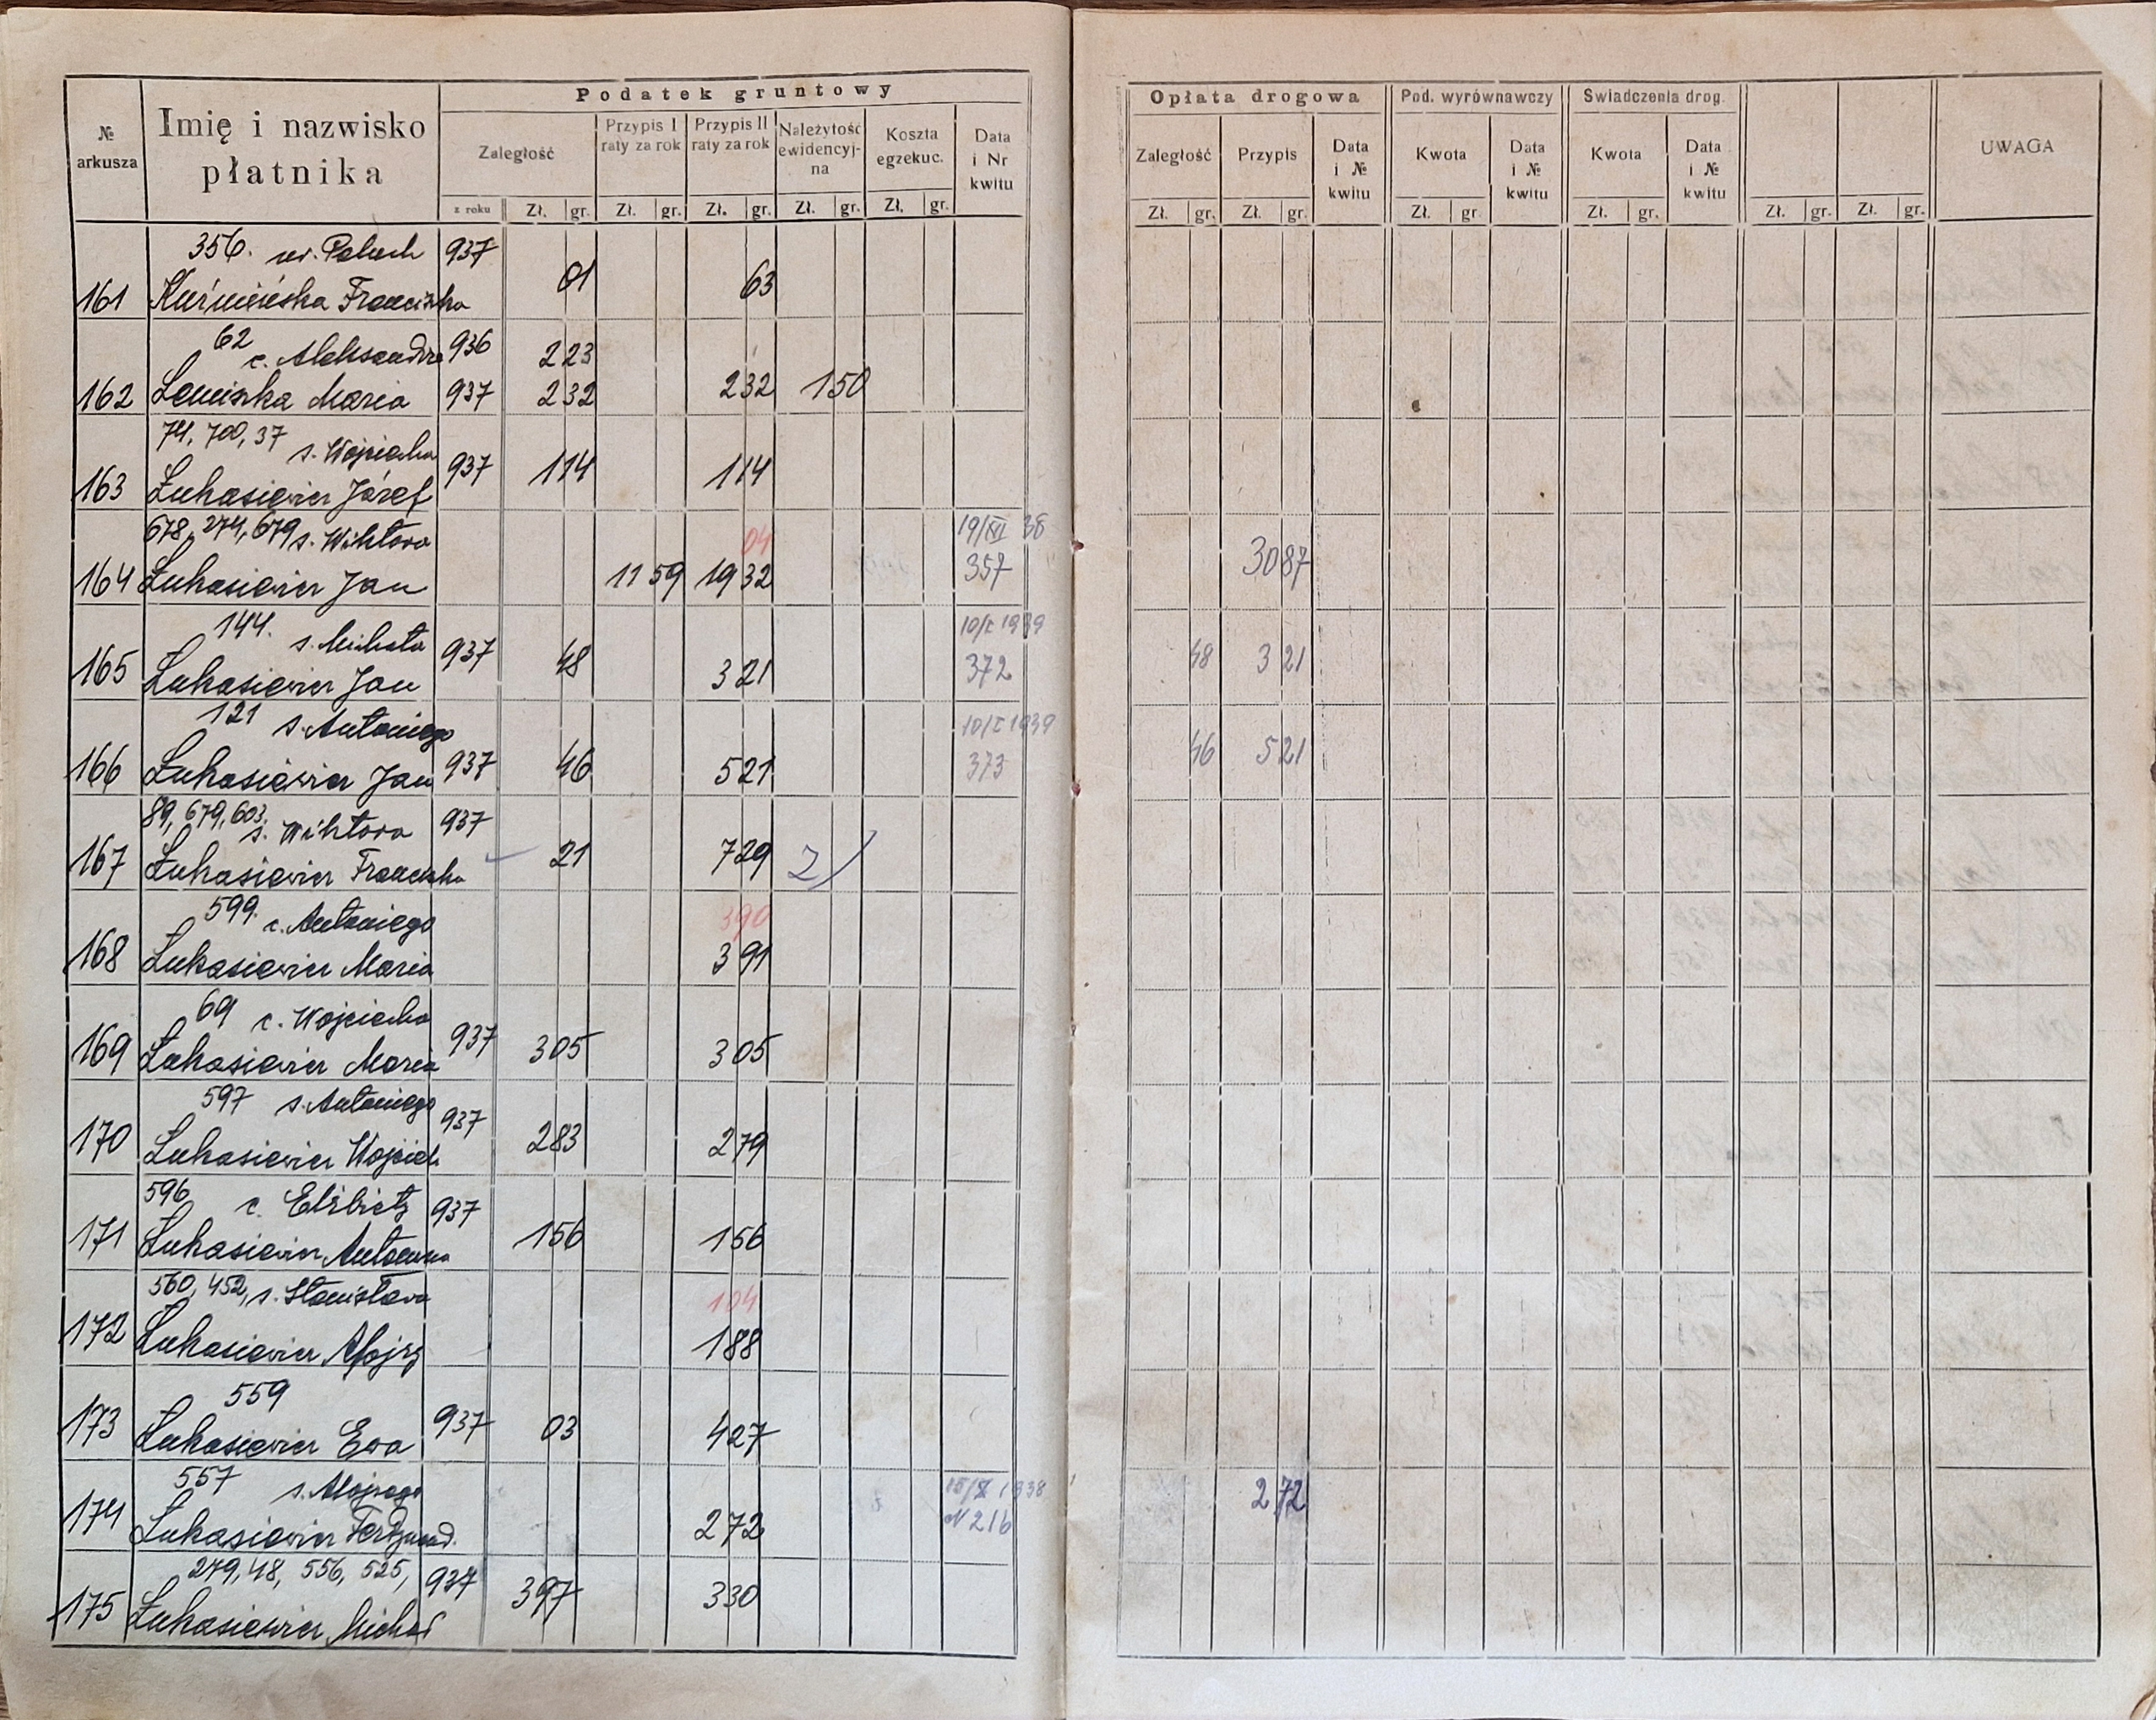 Podatek gruntowy
№ arkusza
Imię i nazwisko płatnika
Zaległość
Przypis I raty za rok
Przypis II raty za rok
Należytość ewidencyjna
Koszta egzekuc.
Data i Nr kwitu
z roku Zł. gr. Zł. gr. Zł. gr. Zł. gr. Zł. gr.
Opłata drogowa Pod. wyrównawczy Świadczenia drog.
Zaległość Przypis Data i № kwitu Kwota Data i № kwitu Kwota Data i № kwitu UWAGA
Zł. gr. Zł. gr. Zł. gr. Zł. gr. Zł. gr. Zł. gr.
356. 937
161 Franciszka 01 63
62 c. Aleksandra 936 2 23
162 Lemiszka Maria 937 2 32 2 32 1 50
74, 700, 37 s. Wojciecha
163 Łukasiewicz Józef 937 1 14 1 14
678, 274, 679 s. Wiktora 04 19/XII 38
164 Łukasiewicz Jan 11 59 19 32 357 30 87
144. s. Michała 10/I 1939
165 Łukasiewicz Jan 937 48 3 21 372 48 3 21
121 s. Antoniego 10/I 1939
166 Łukasiewicz Jan 937 46 5 21 373 46 5 21
89, 679, 603, s. Wiktora 937
167 Łukasiewicz Franciszka 21 7 29
599. c. Antoniego 390
168 Łukasiewicz Maria 3 91
69 c. Wojciecha
169 Łukasiewicz Maria 937 3 05 3 05
597 s. Antoniego
170 Łukasiewicz Wojciech 937 2 83 2 79
596 c. Elżbiety 937
171 Łukasiewicz Antonina 1 56 1 56
560, 452, s. Stanisława 104
172 Łukasiewicz Alojzy 1 88
559
173 Łukasiewicz Ewa 937 03 4 27
557 s. Alojzego 15/X 1938
174 Łukasiewicz Ferdynand. 2 72 N 216 2 72
279, 48, 556, 525, 937
175 Łukasiewicz Michał 3 97 3 30